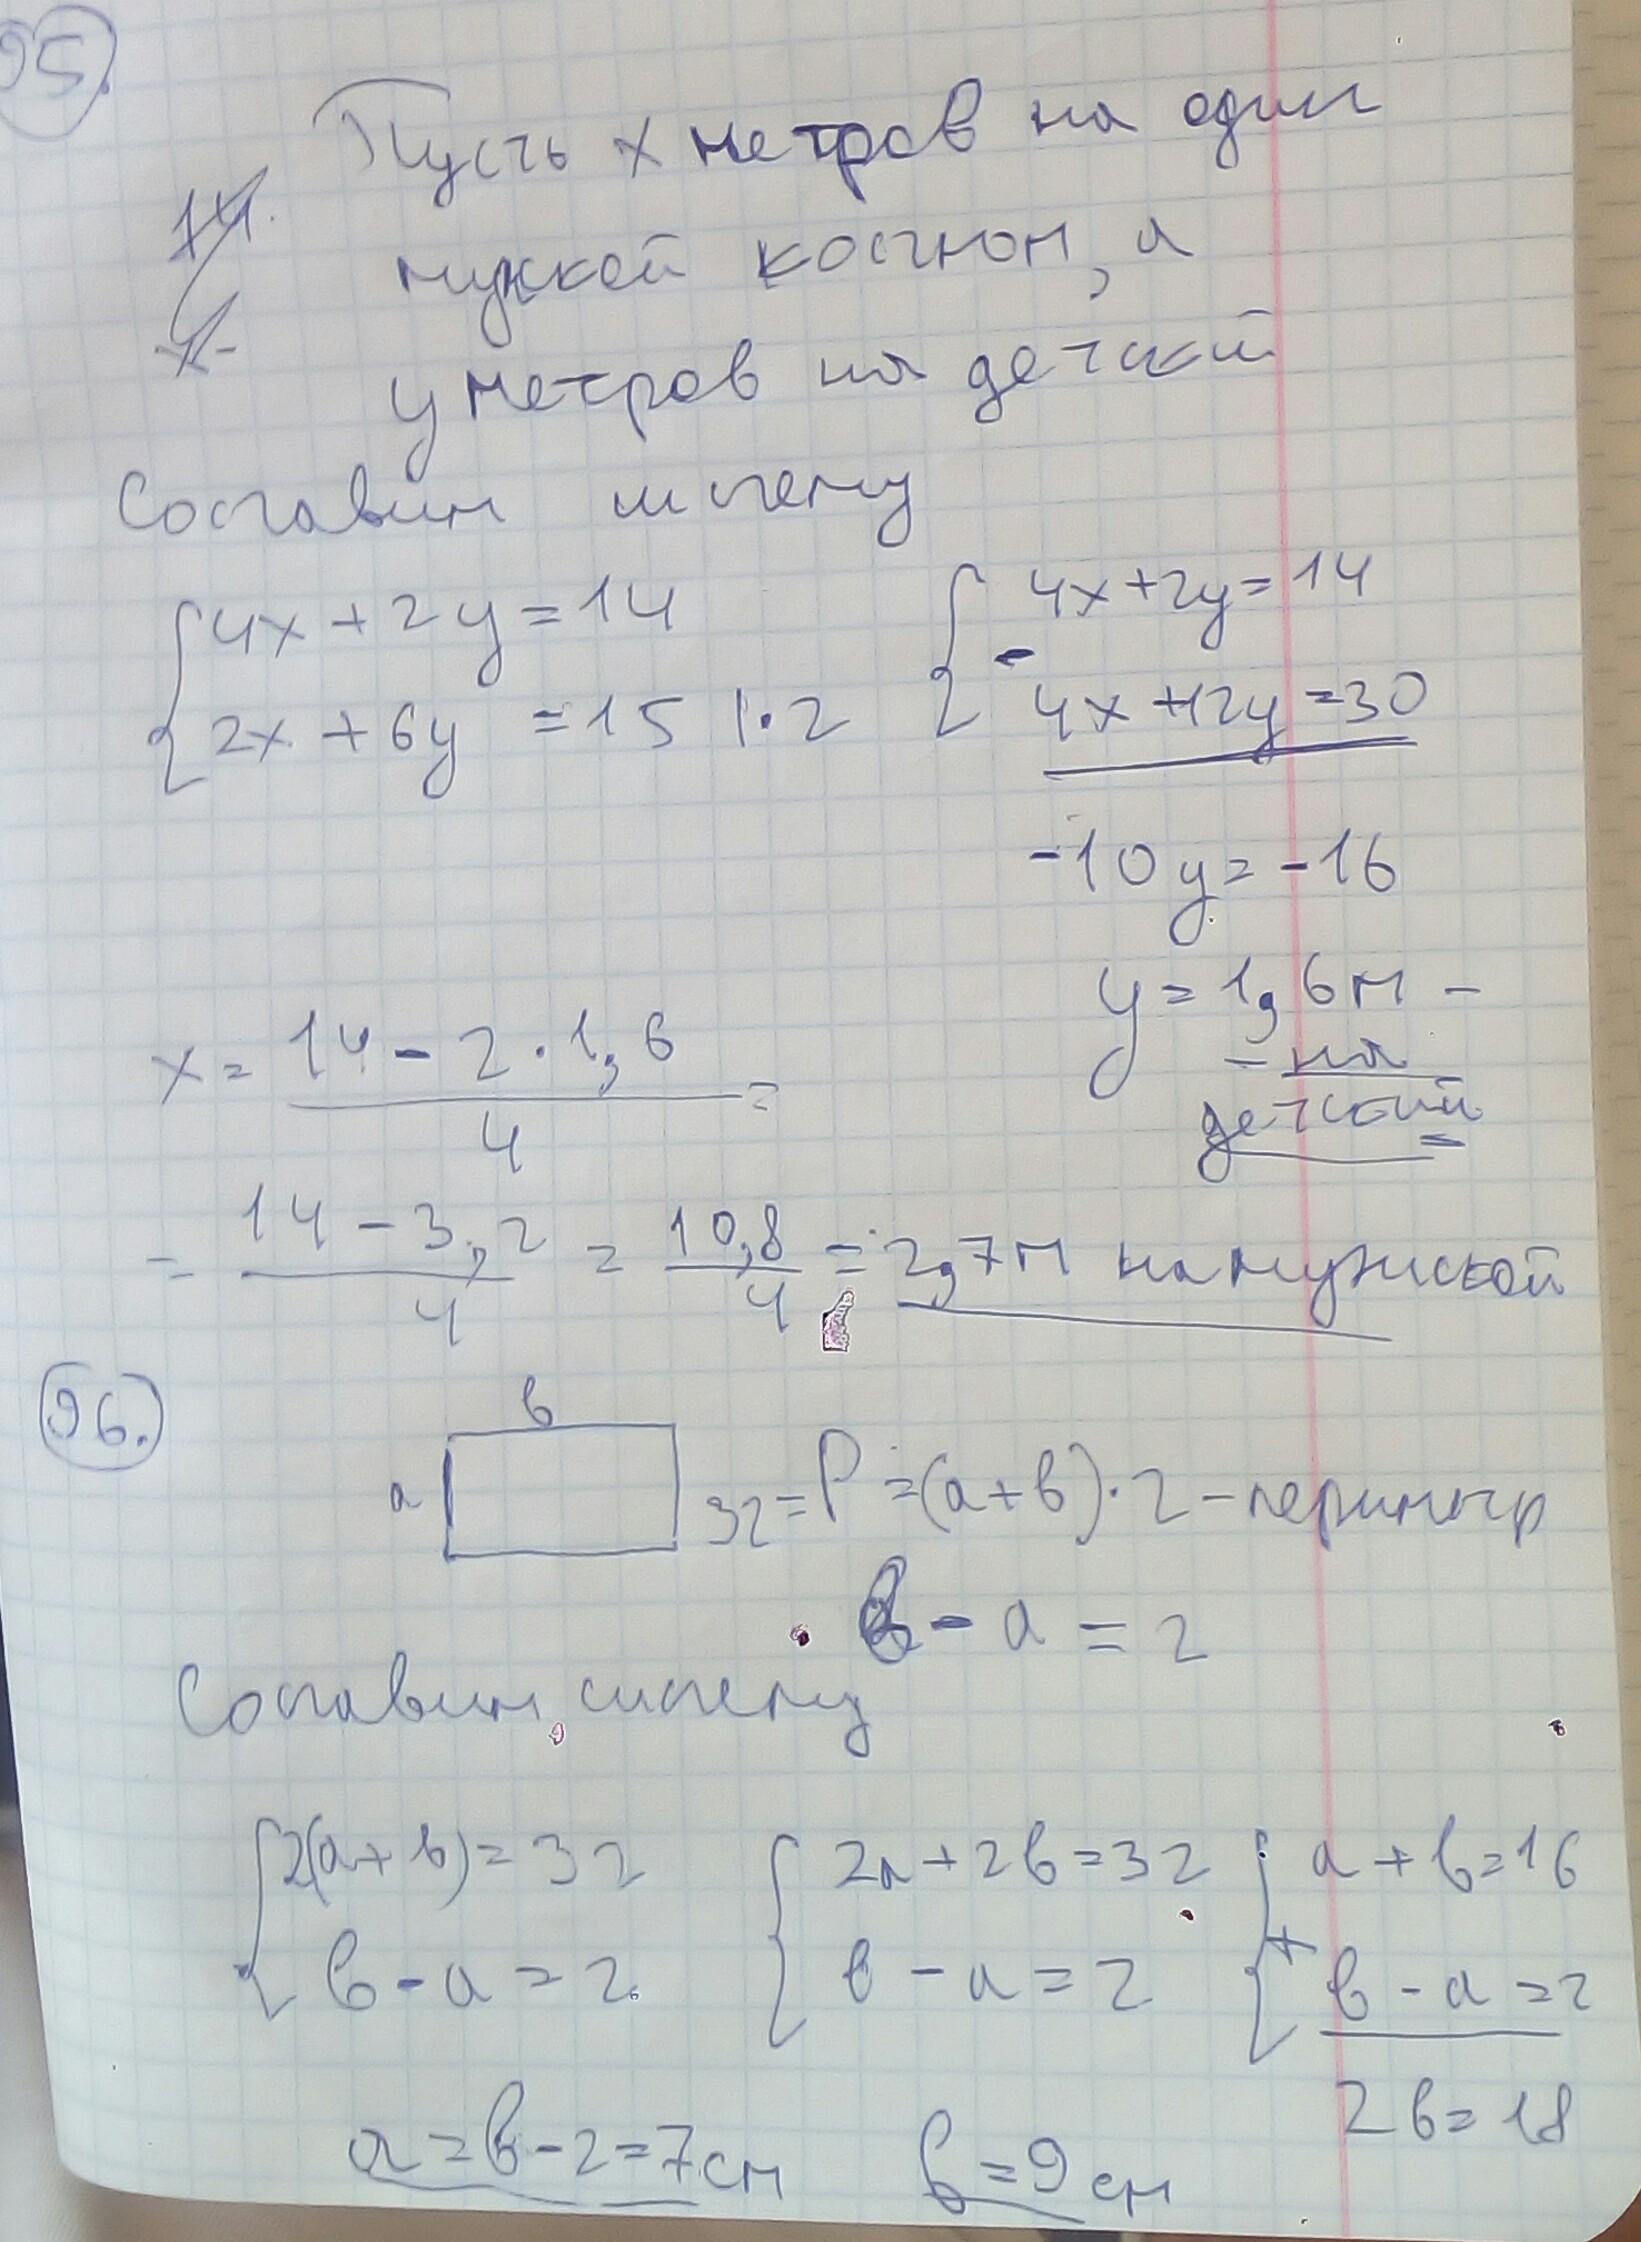 95.
Пусть x метров на один
14.
мужской костюм, а
y метров на детский
Составим систему
{ 4x + 2y = 14
2x + 6y = 15 | · 2
{ 4x + 2y = 14
-
4x + 12y = 30
-10y = -16
y = 1,6 м -
- на
детский
x = (14 - 2 · 1,6) / 4 =
= (14 - 3,2) / 4 = 10,8 / 4 = 2,7 м на мужской
96.
в
а
32 = P = (a + в) · 2 - периметр
в - a = 2
Составим систему
{ 2(a + в) = 32
в - a = 2
{ 2a + 2в = 32
в - a = 2
{ a + в = 16
+
в - a = 2
2в = 18
a = в - 2 = 7 см
в = 9 см